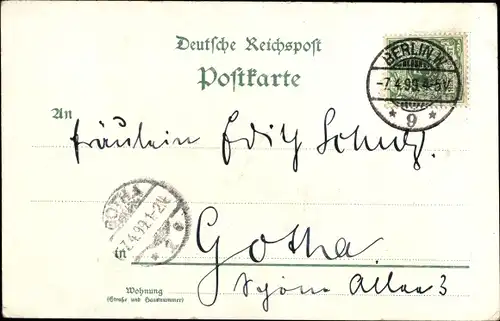 Deutsche Reichspost
Postkarte
BERLIN.N.
-7.4.99.4-5V.
* 9 *
An
Fräulein Edith Schulz.
GOTHA
-7.4.99.1-2N.
* 2 e
in
Gotha.
Schöne Allee 3
Wohnung
(Straße und Hausnummer)